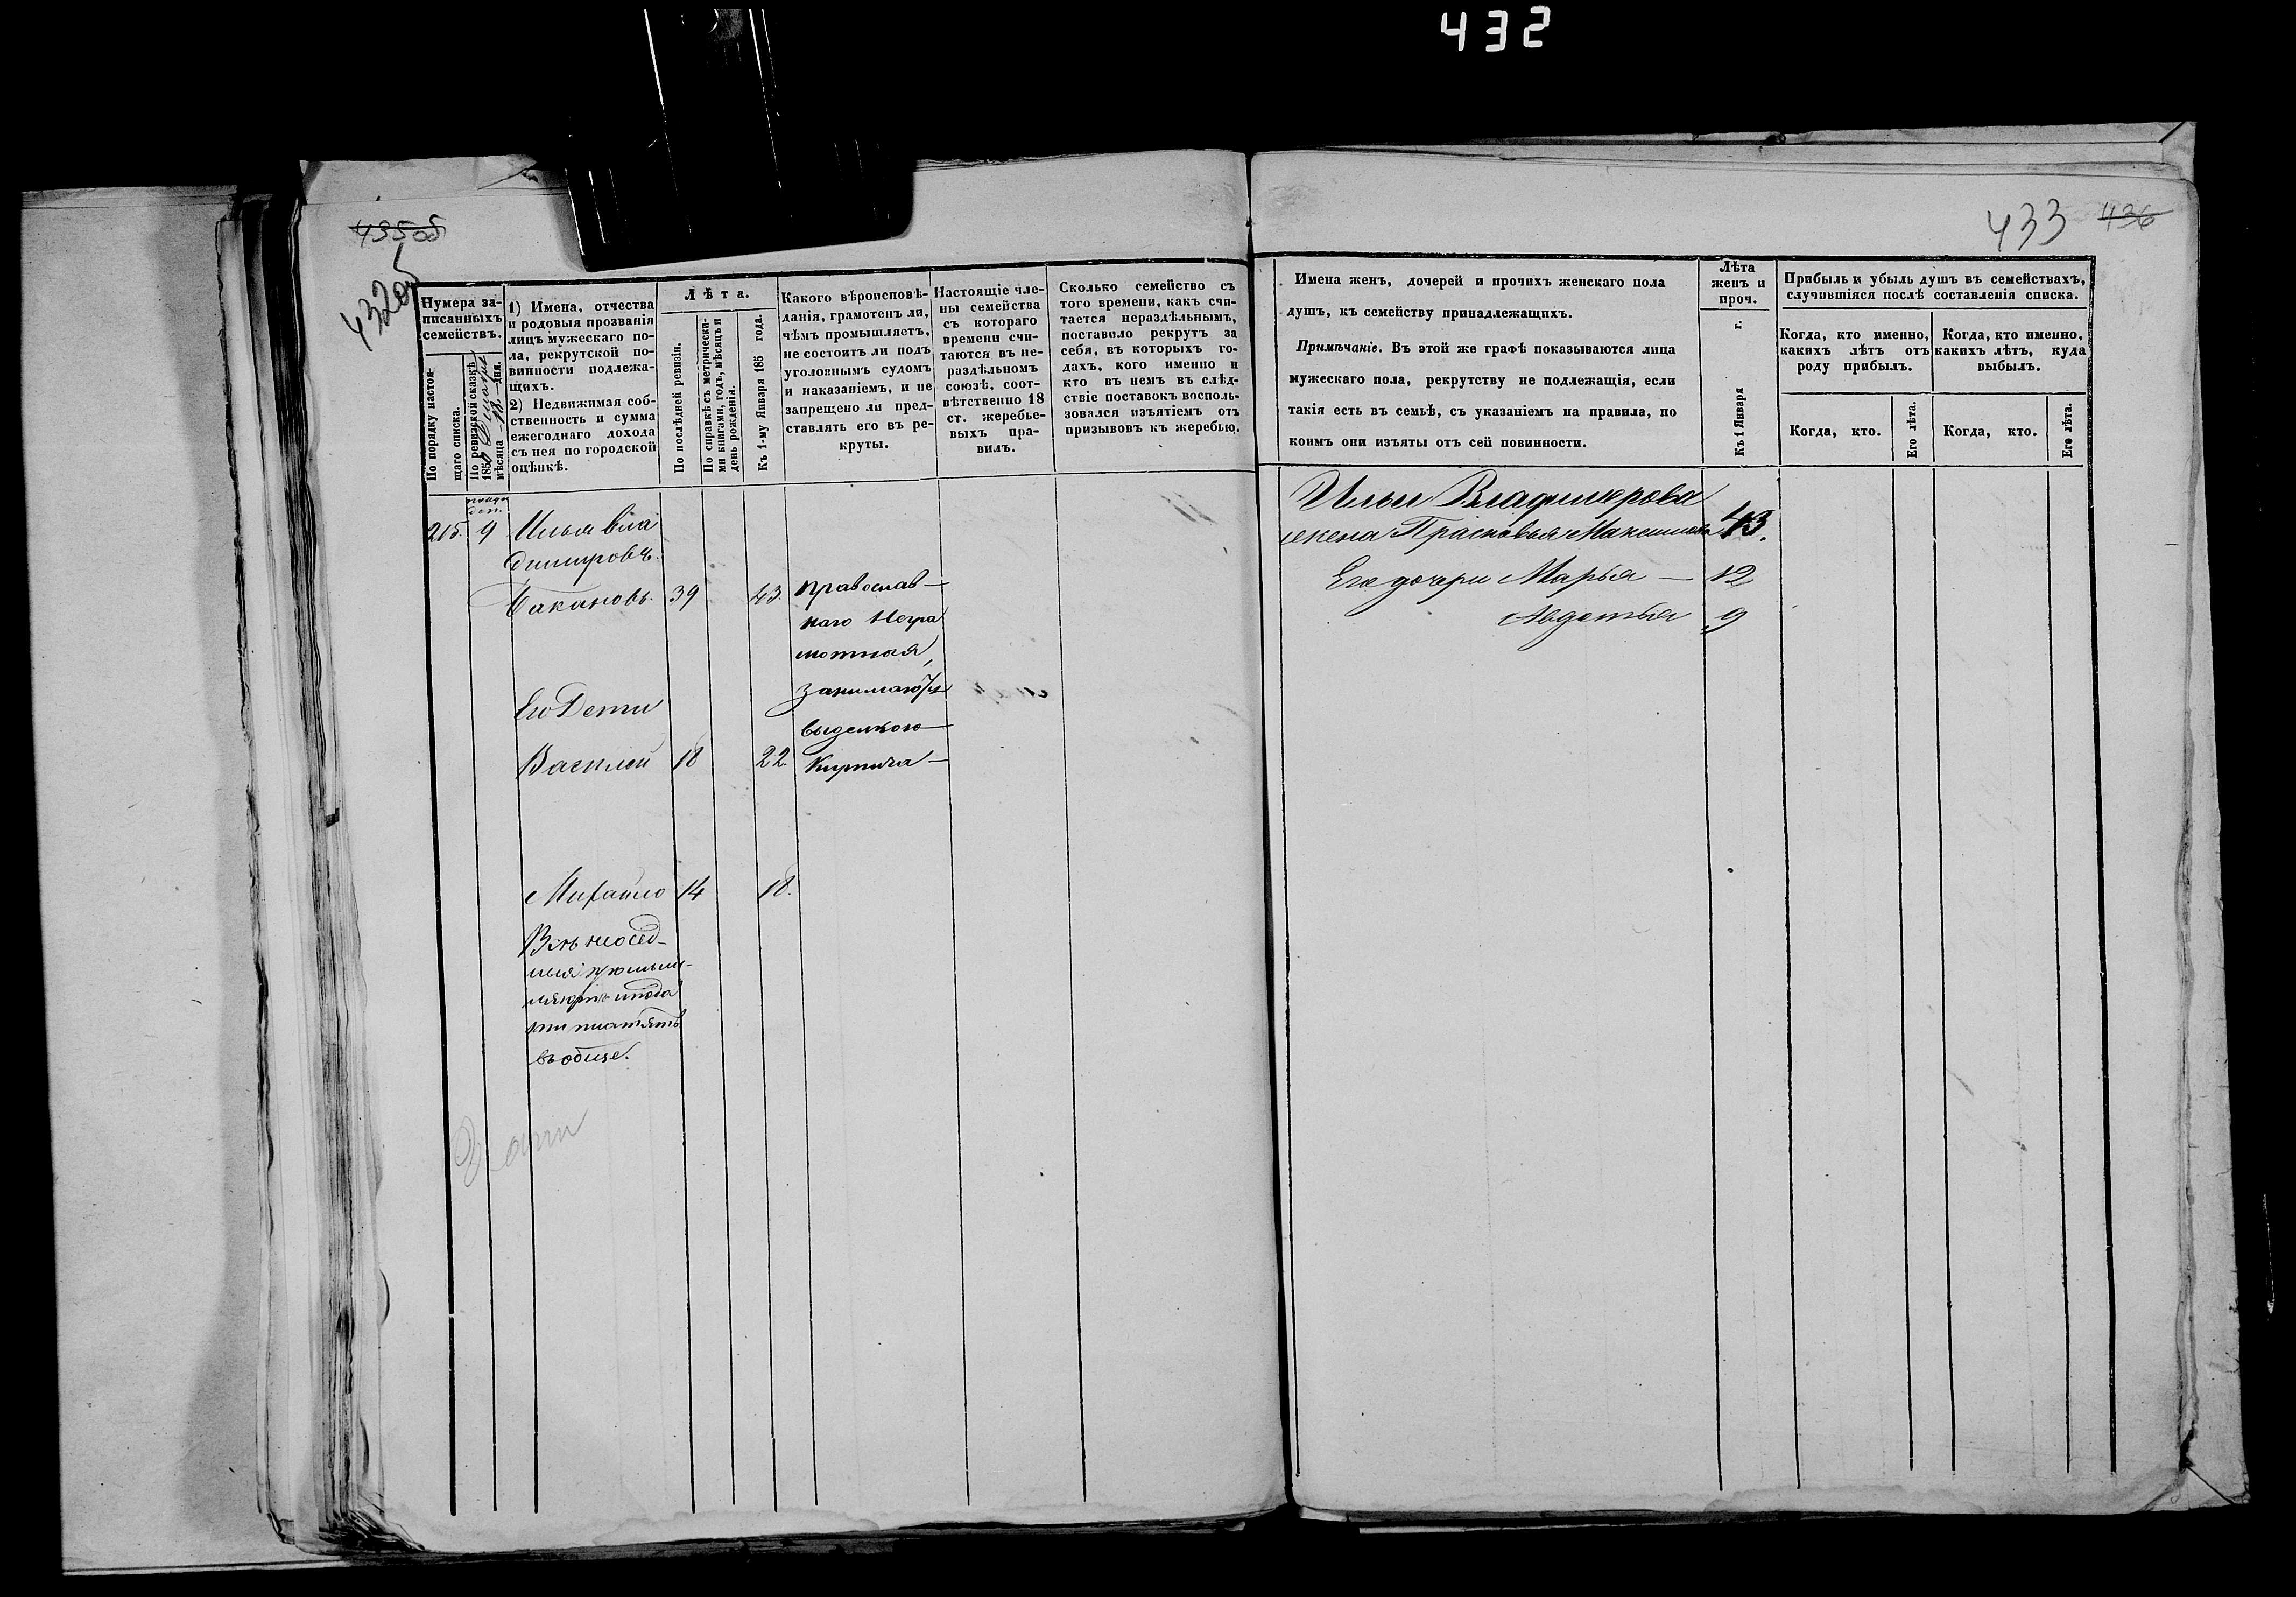 432
435 об
432 об
433 436
Нумера за-
писанныхъ
семействъ.
По порядку настоя-
щаго списка.
По ревизской сказкѣ
1850
мѣсяца дня.
1) Имена, отчества
и родовыя прозванія
лицъ мужескаго по-
ла, рекрутской по-
винности подлежа-
щихъ.
2) Недвижимая соб-
ственность и сумма
ежегоднаго дохода
съ нея по городской
оцѣнкѣ.
Лѣта.
По послѣдней ревизіи.
По справкѣ съ метрически-
ми книгами, годъ, мѣсяцъ и
день рожденія.
Къ 1-му Января 185 года.
Какого вѣроисповѣ-
данія, грамотенъ ли,
чѣмъ промышляетъ,
не состоитъ ли подъ
уголовнымъ судомъ
и наказаніемъ, и не
запрещено ли пред-
ставлять его въ ре-
круты.
Настоящіе чле-
ны семейства
съ котораго
времени счи-
таются въ не-
раздѣльномъ
союзѣ, соот-
вѣтственно 18
ст. жеребье-
выхъ пра-
вилъ.
Сколько семейство съ
того времени, какъ счи-
тается нераздѣльнымъ,
поставило рекрутъ за
себя, въ которыхъ го-
дахъ, кого именно и
кто въ немъ въ слѣд-
ствіе поставокъ восполь-
зовался изъятіемъ отъ
призывовъ къ жеребью.
215. 9 Илья Вла
димировъ
Бакановъ. 39 43. Православ-
наго Негра
мотная,
занимаются
Его Дети
выделкою
Василей 18 22. Кирпича
Михайло 14 18.
Вэть
платятъ
въ обще.
Имена женъ, дочерей и прочихъ женскаго пола
душъ, къ семейству принадлежащихъ.
Примѣчаніе. Въ этой же графѣ показываются лица
мужескаго пола, рекрутству не подлежащія, если
такія есть въ семьѣ, съ указаніемъ на правила, по
коимъ они изъяты отъ сей повинности.
Лѣта
женъ и
проч.
Къ 1 Января г.
Прибыль и убыль душъ въ семействахъ,
случившіяся послѣ составленія списка.
Когда, кто именно,
какихъ лѣтъ отъ
роду прибылъ.
Когда, кто именно,
какихъ лѣтъ, куда
выбылъ.
Когда, кто.
Его лѣта.
Когда, кто.
Его лѣта.
Ильи Владимирова
жена Прасковья Максимова 43.
Его дочери Марья — 12
Авдотья 9